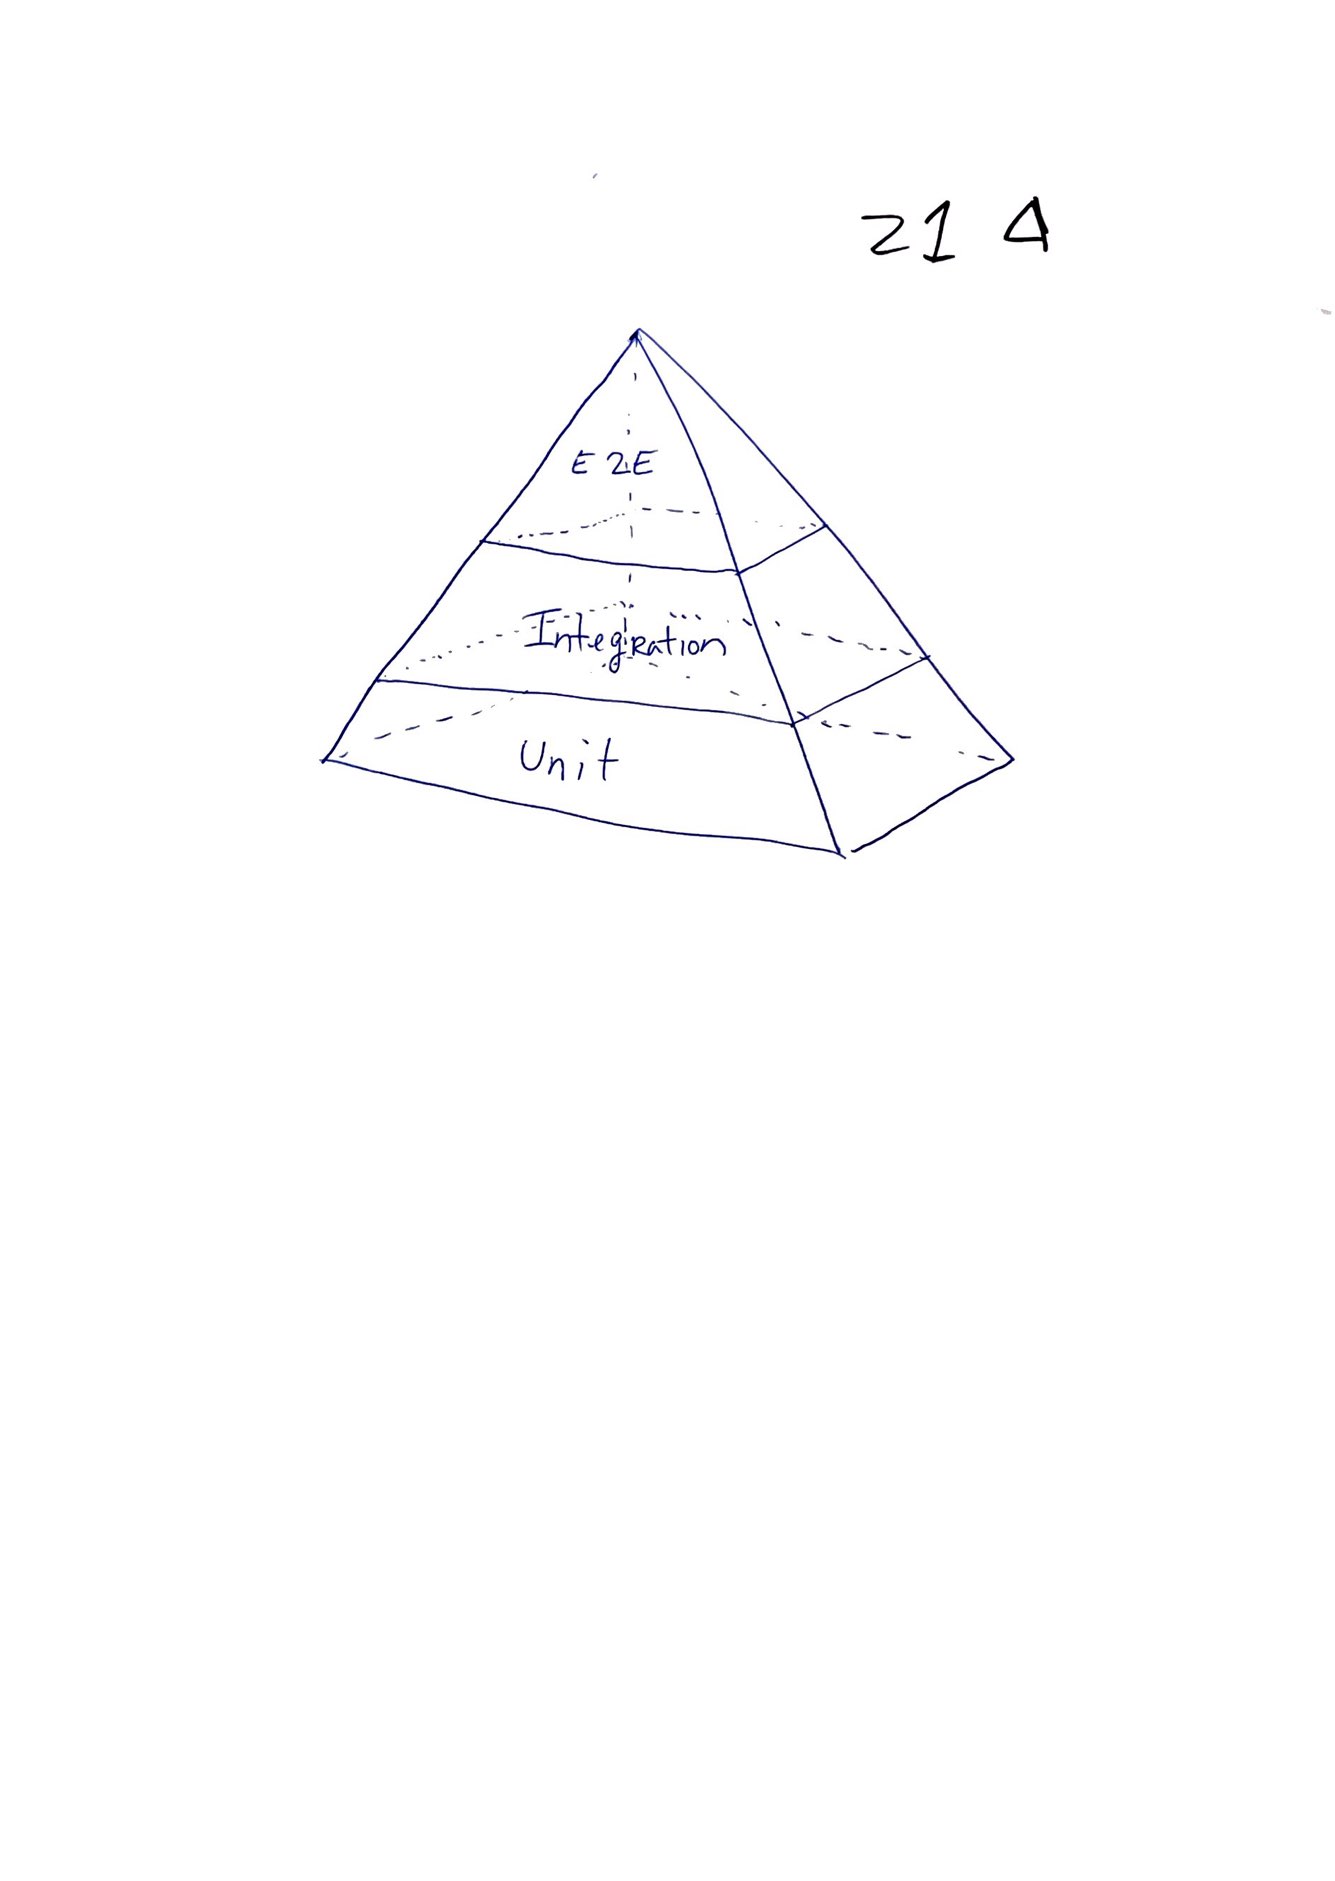 21 A
E2E
Integration
Unit